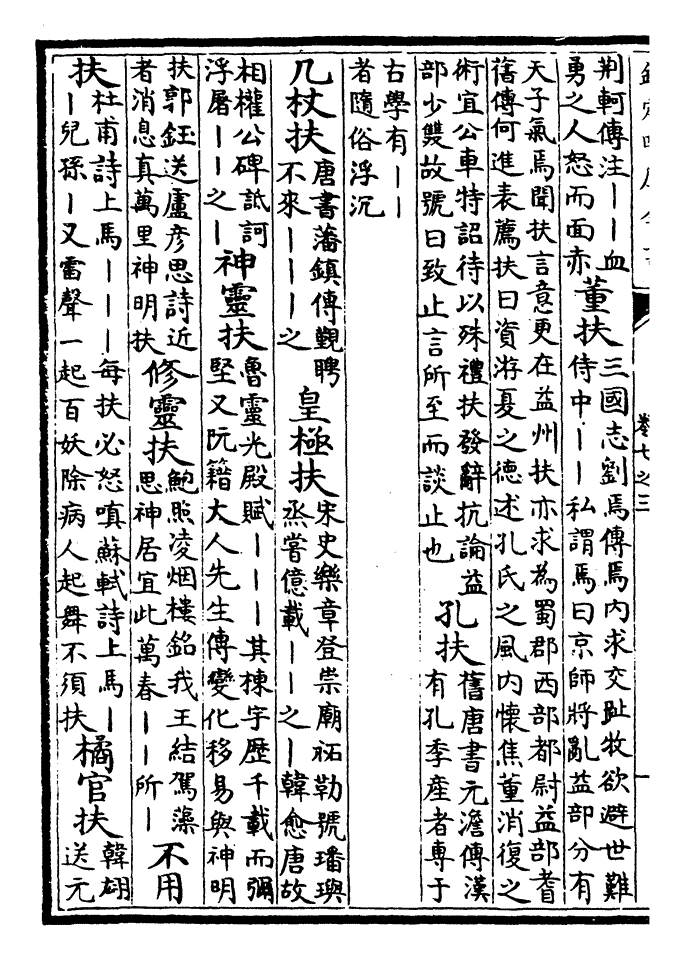 欽定四庫全書
卷七之三
荆軻傳注丨丨血
勇之人怒而面亦
董扶
三國志劉焉傳焉内求交趾牧欲避世難
侍中丨丨私謂焉曰京師將亂益部分有
天子氣焉聞扶言意更在益州扶亦求為蜀郡西部都尉益部耆
舊傳何進表薦扶曰資游夏之德述孔氏之風内懷焦董消復之
術宜公車特詔待以殊禮扶發辭抗論益
部少雙故號曰致止言所至而談止也
孔扶
舊唐書元澹傳漢
有孔季産者專于
古學有丨丨
者隨俗浮沉
几杖扶
唐書藩鎮傳覲聘
不來丨丨丨之
皇極扶
宋史樂章登崇廟祏勒號璠璵
烝嘗億載丨丨之丨韓愈唐故
相權公碑詆訶
浮屠丨丨之丨
神靈扶
魯靈光殿賦丨丨丨其棟宇歷千載而彌
堅又阮籍大人先生傳變化移易與神明
扶郭鈺送盧彦思詩近
者消息真萬里神明扶
修靈扶
鮑照凌烟樓銘我王結駕藻
思神居宜此萬春丨丨所丨
不用
扶
杜甫詩上馬丨丨丨每扶必怒嗔蘇軾詩上馬丨
丨兒孫丨又雷聲一起百妖除病人起舞不須扶
橘官扶
韓翃
送元